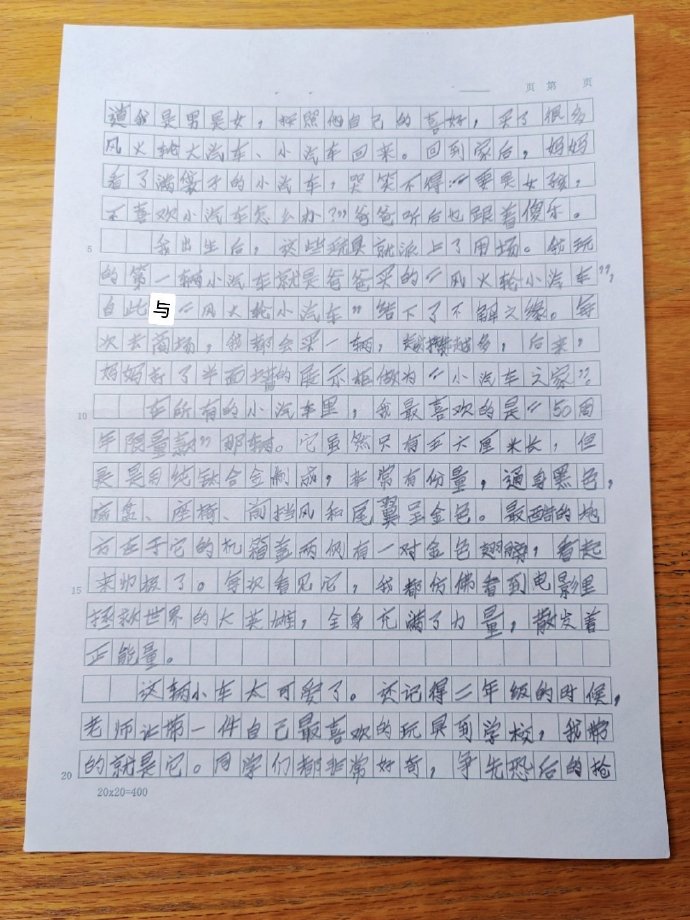 页 第 页
道我是男是女，按照他自己的喜好，买了很多
风火轮大汽车、小汽车回来。回到家后，妈妈
看了满袋子的小汽车，哭笑不得：“要是女孩，
不喜欢小汽车怎么办？”爸爸听后也跟着傻乐。
5 我出生后，这些玩具就派上了用场。我玩
的第一辆小汽车就是爸爸买的“风火轮小汽车”，
自此与“风火轮小汽车”结下了不解之缘。每
次去商场，我都会买一辆，越攒越多，后来，
妈妈打了半面墙的展示柜做为“小汽车之家”
10 在所有的小汽车里，我最喜欢的是“50周
年限量款”那辆。它虽然只有五六厘米长，但
是是用纯钛合金制成，非常有份量，通身黑色，
底盘、座椅、前挡风和尾翼呈金色。最酷的地
方在于它的机箱盖两侧有一对金色翅膀，看起
15 来帅极了。每次看见它，我都仿佛看到电影里
拯救世界的大英雄，全身充满了力量，散发着
正能量。
这辆小车太可爱了。还记得二年级的时候，
老师让带一件自己最喜欢的玩具到学校，我带
20 的就是它。同学们都非常好奇，争先恐后的抢
20x20=400